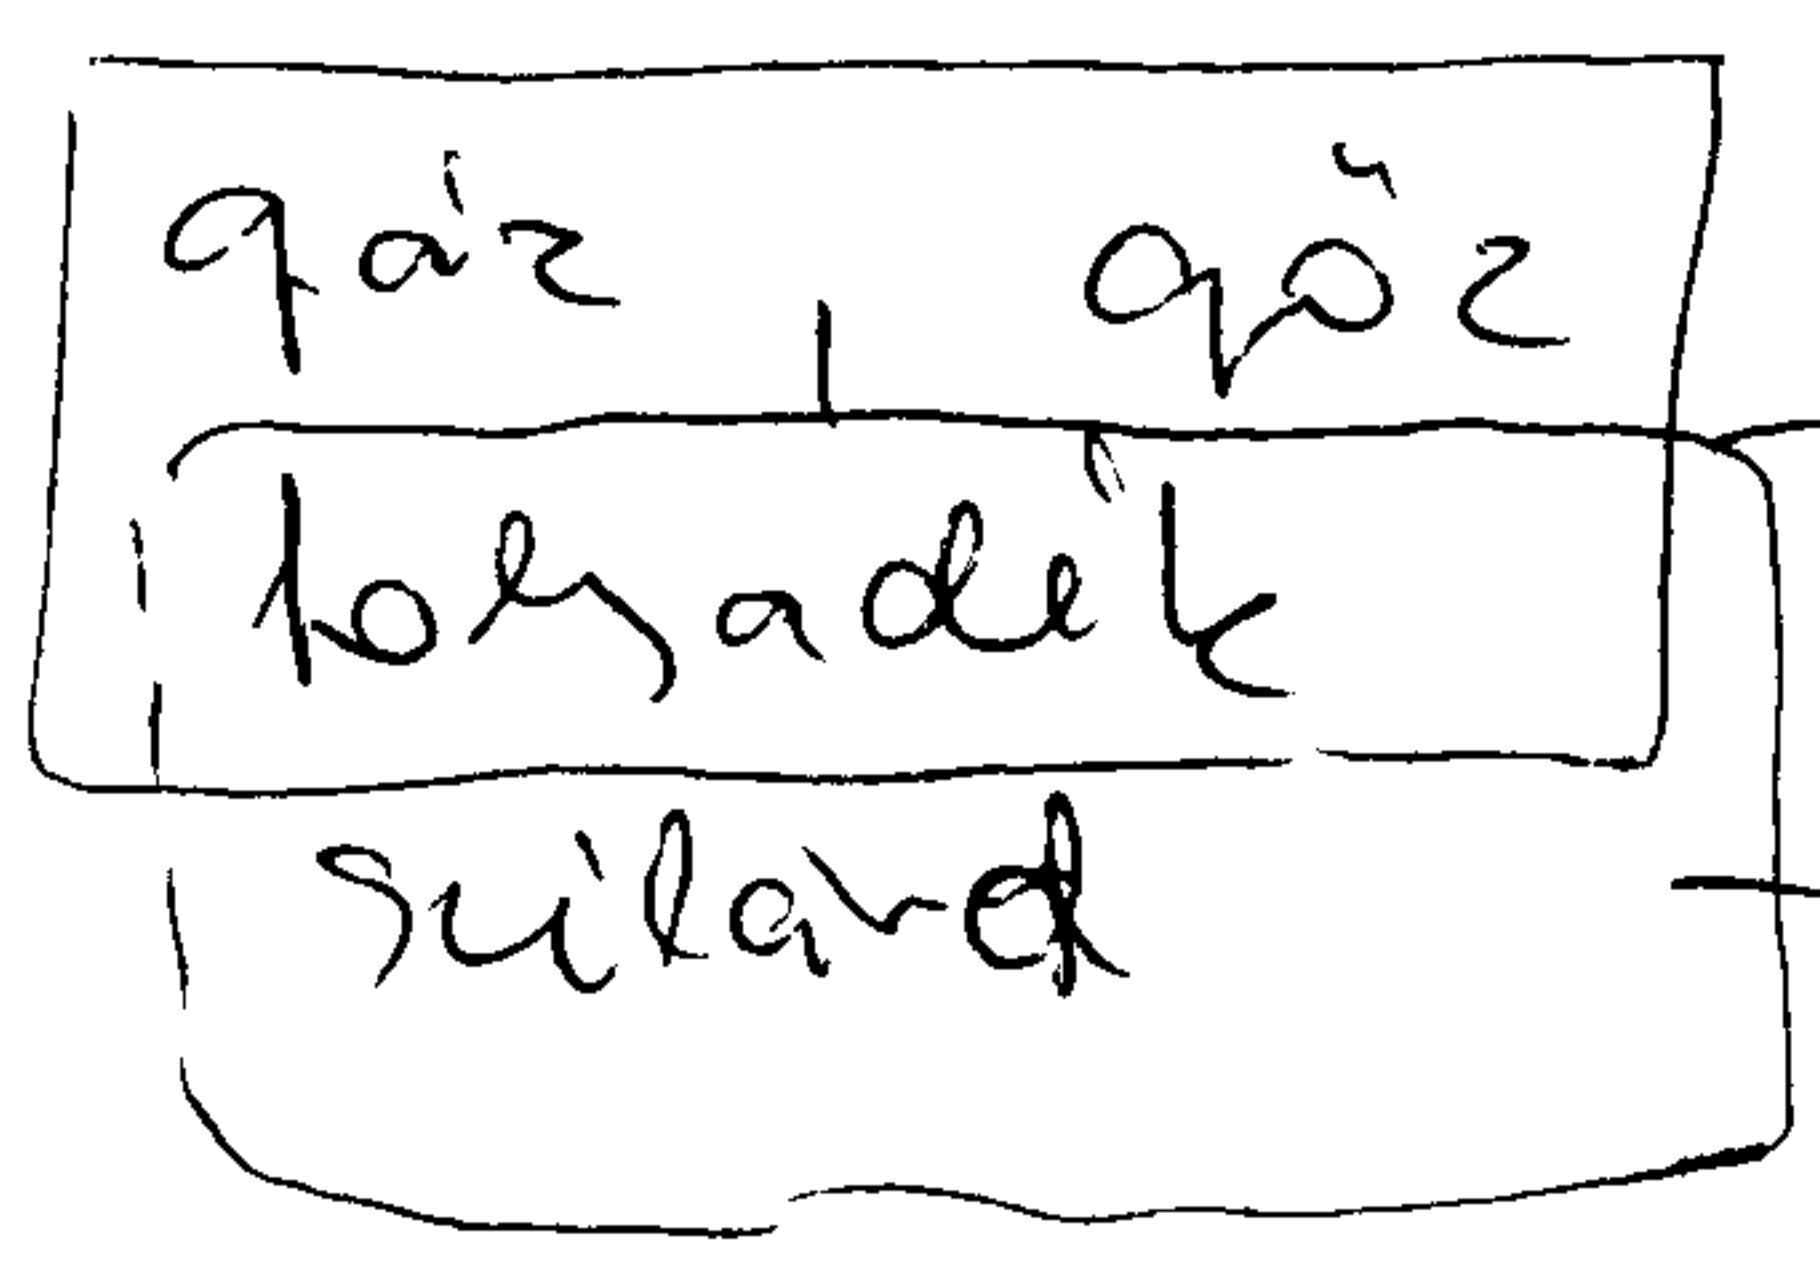 gáz gőz
folyadék
szilárd